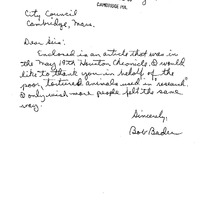 CAMBRIDGE MA.
City Council
Cambridge, Mass.
Dear Sirs:
Enclosed is an article that was in
the May 19th Houston Chronicle. I would
like to thank you in behalf of the
poor, tortured animals used in "research".
I only wish more people felt the same
way.
Sincerely,
Bob Bader